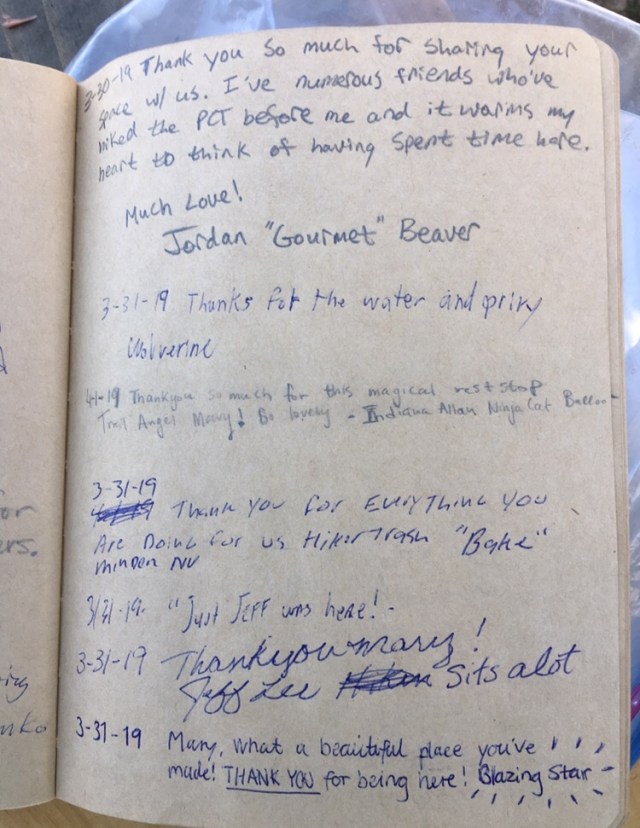 3-30-19 Thank you so much for sharing your
space w/ us. I've numerous friends who've
hiked the PCT before me and it warms my
heart to think of having spent time here.
Much Love!
Jordan "Gourmet" Beaver
3-31-19 Thanks for the water and privy
Wolverine
4-1-19 Thankyou so much for this magical rest stop
Trail Angel Mary! So lovely - Indiana Allan Ninja Cat
3-31-19
Thank you for Everything you
Are Doing for us HikerTrash "Bake"
Minden NV
3/31-19- "Just Jeff was here! -
3-31-19 Thankyou mary!
Jeff Lee Sits alot
3-31-19 Mary, what a beautiful place you've
made! THANK YOU for being here! Blazing Star
or
ers.